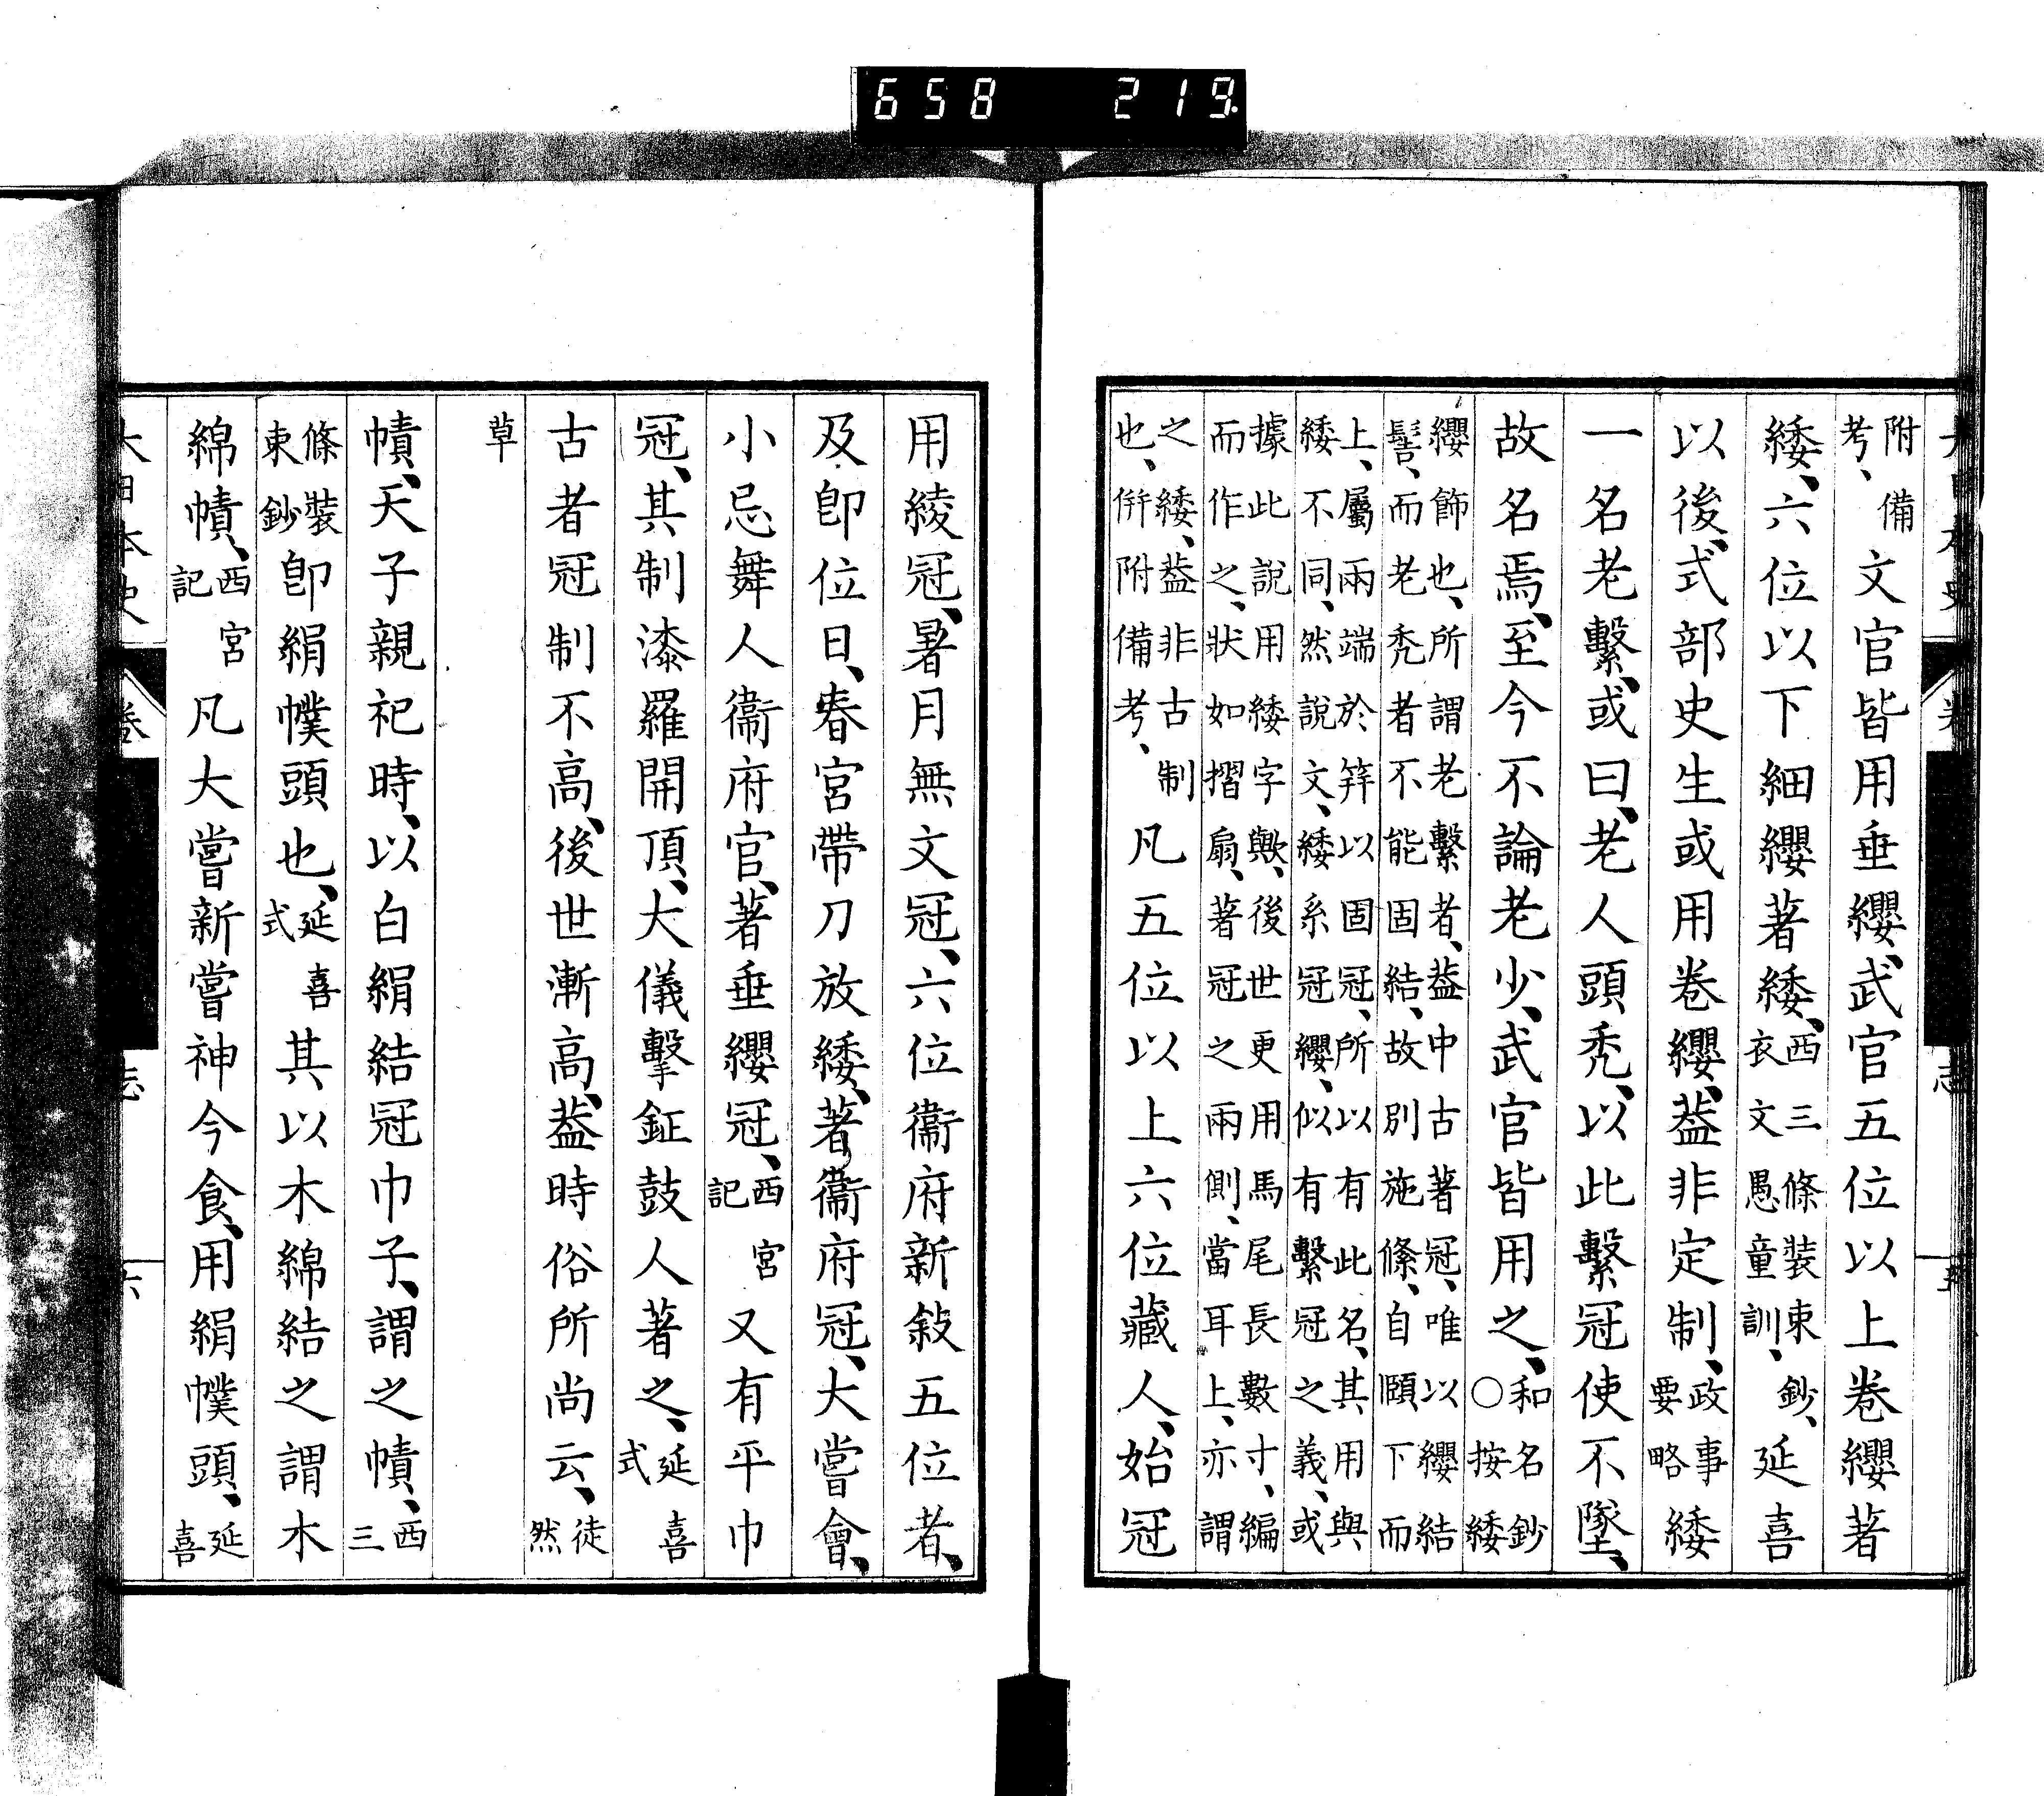 658 219
附備考、文官皆用垂纓、武官五位以上卷纓著
緌、六位以下細纓著緌、西三條裝束鈔、衣文愚童訓、延喜
以後、式部史生或用卷纓、葢非定制、政事要略緌
一名老繫、或曰、老人頭禿、以此繫冠使不墜、
故名焉、至今不論老少、武官皆用之、和名鈔○按緌
纓飾也、所謂老繫者、葢中古著冠、唯以纓結
髻、而老禿者不能固結、故別施條、自頤下而
上、屬兩端於笄以固冠、所以有此名、其用與
緌不同、然說文、緌系冠纓、似有繫冠之義、或
據此說用緌字歟、後世更用馬尾長數寸、編
而作之、狀如摺扇、著冠之兩側、當耳上、亦謂
之緌、葢非古制也、併附備考、凡五位以上六位藏人、始冠
用綾冠、暑月無文冠、六位衞府新敍五位者、
及卽位日、春宮帶刀放緌、著衞府冠、大嘗會、
小忌舞人衞府官、著垂纓冠、西宮記又有平巾
冠、其制漆羅開頂、大儀擊鉦鼓人著之、延喜式
古者冠制不高、後世漸高、葢時俗所尚云、徒然
草
幘、天子親祀時、以白絹結冠巾子、謂之幘、西三
條裝束鈔卽絹幞頭也、延喜式其以木綿結之謂木
綿幘、西宮記凡大嘗新嘗神今食、用絹幞頭、延喜
大日本史 卷 志 六